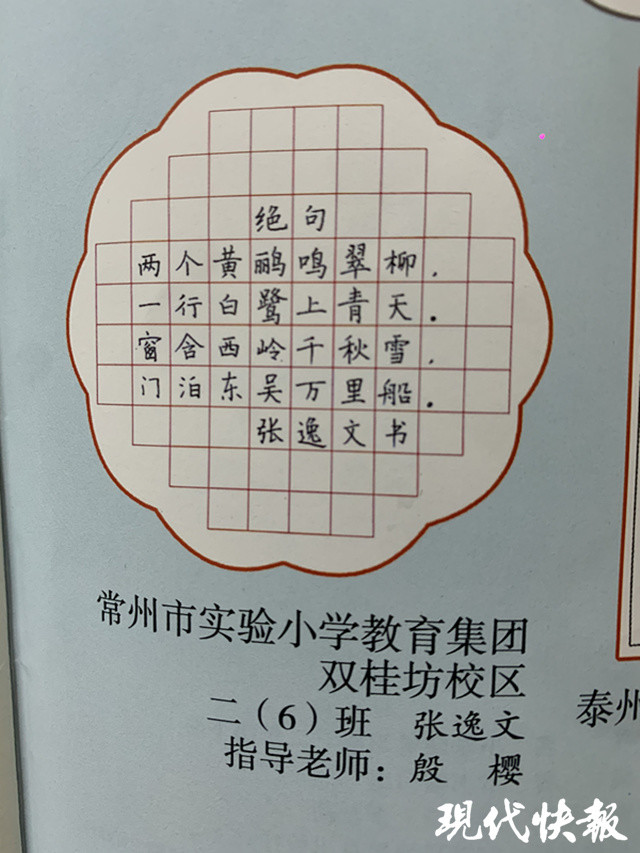 绝句
两个黄鹂鸣翠柳，
一行白鹭上青天．
窗含西岭千秋雪，
门泊东吴万里船．
张逸文书
常州市实验小学教育集团
双桂坊校区
二（6）班 张逸文
指导老师：殷 樱
泰州
现代快报